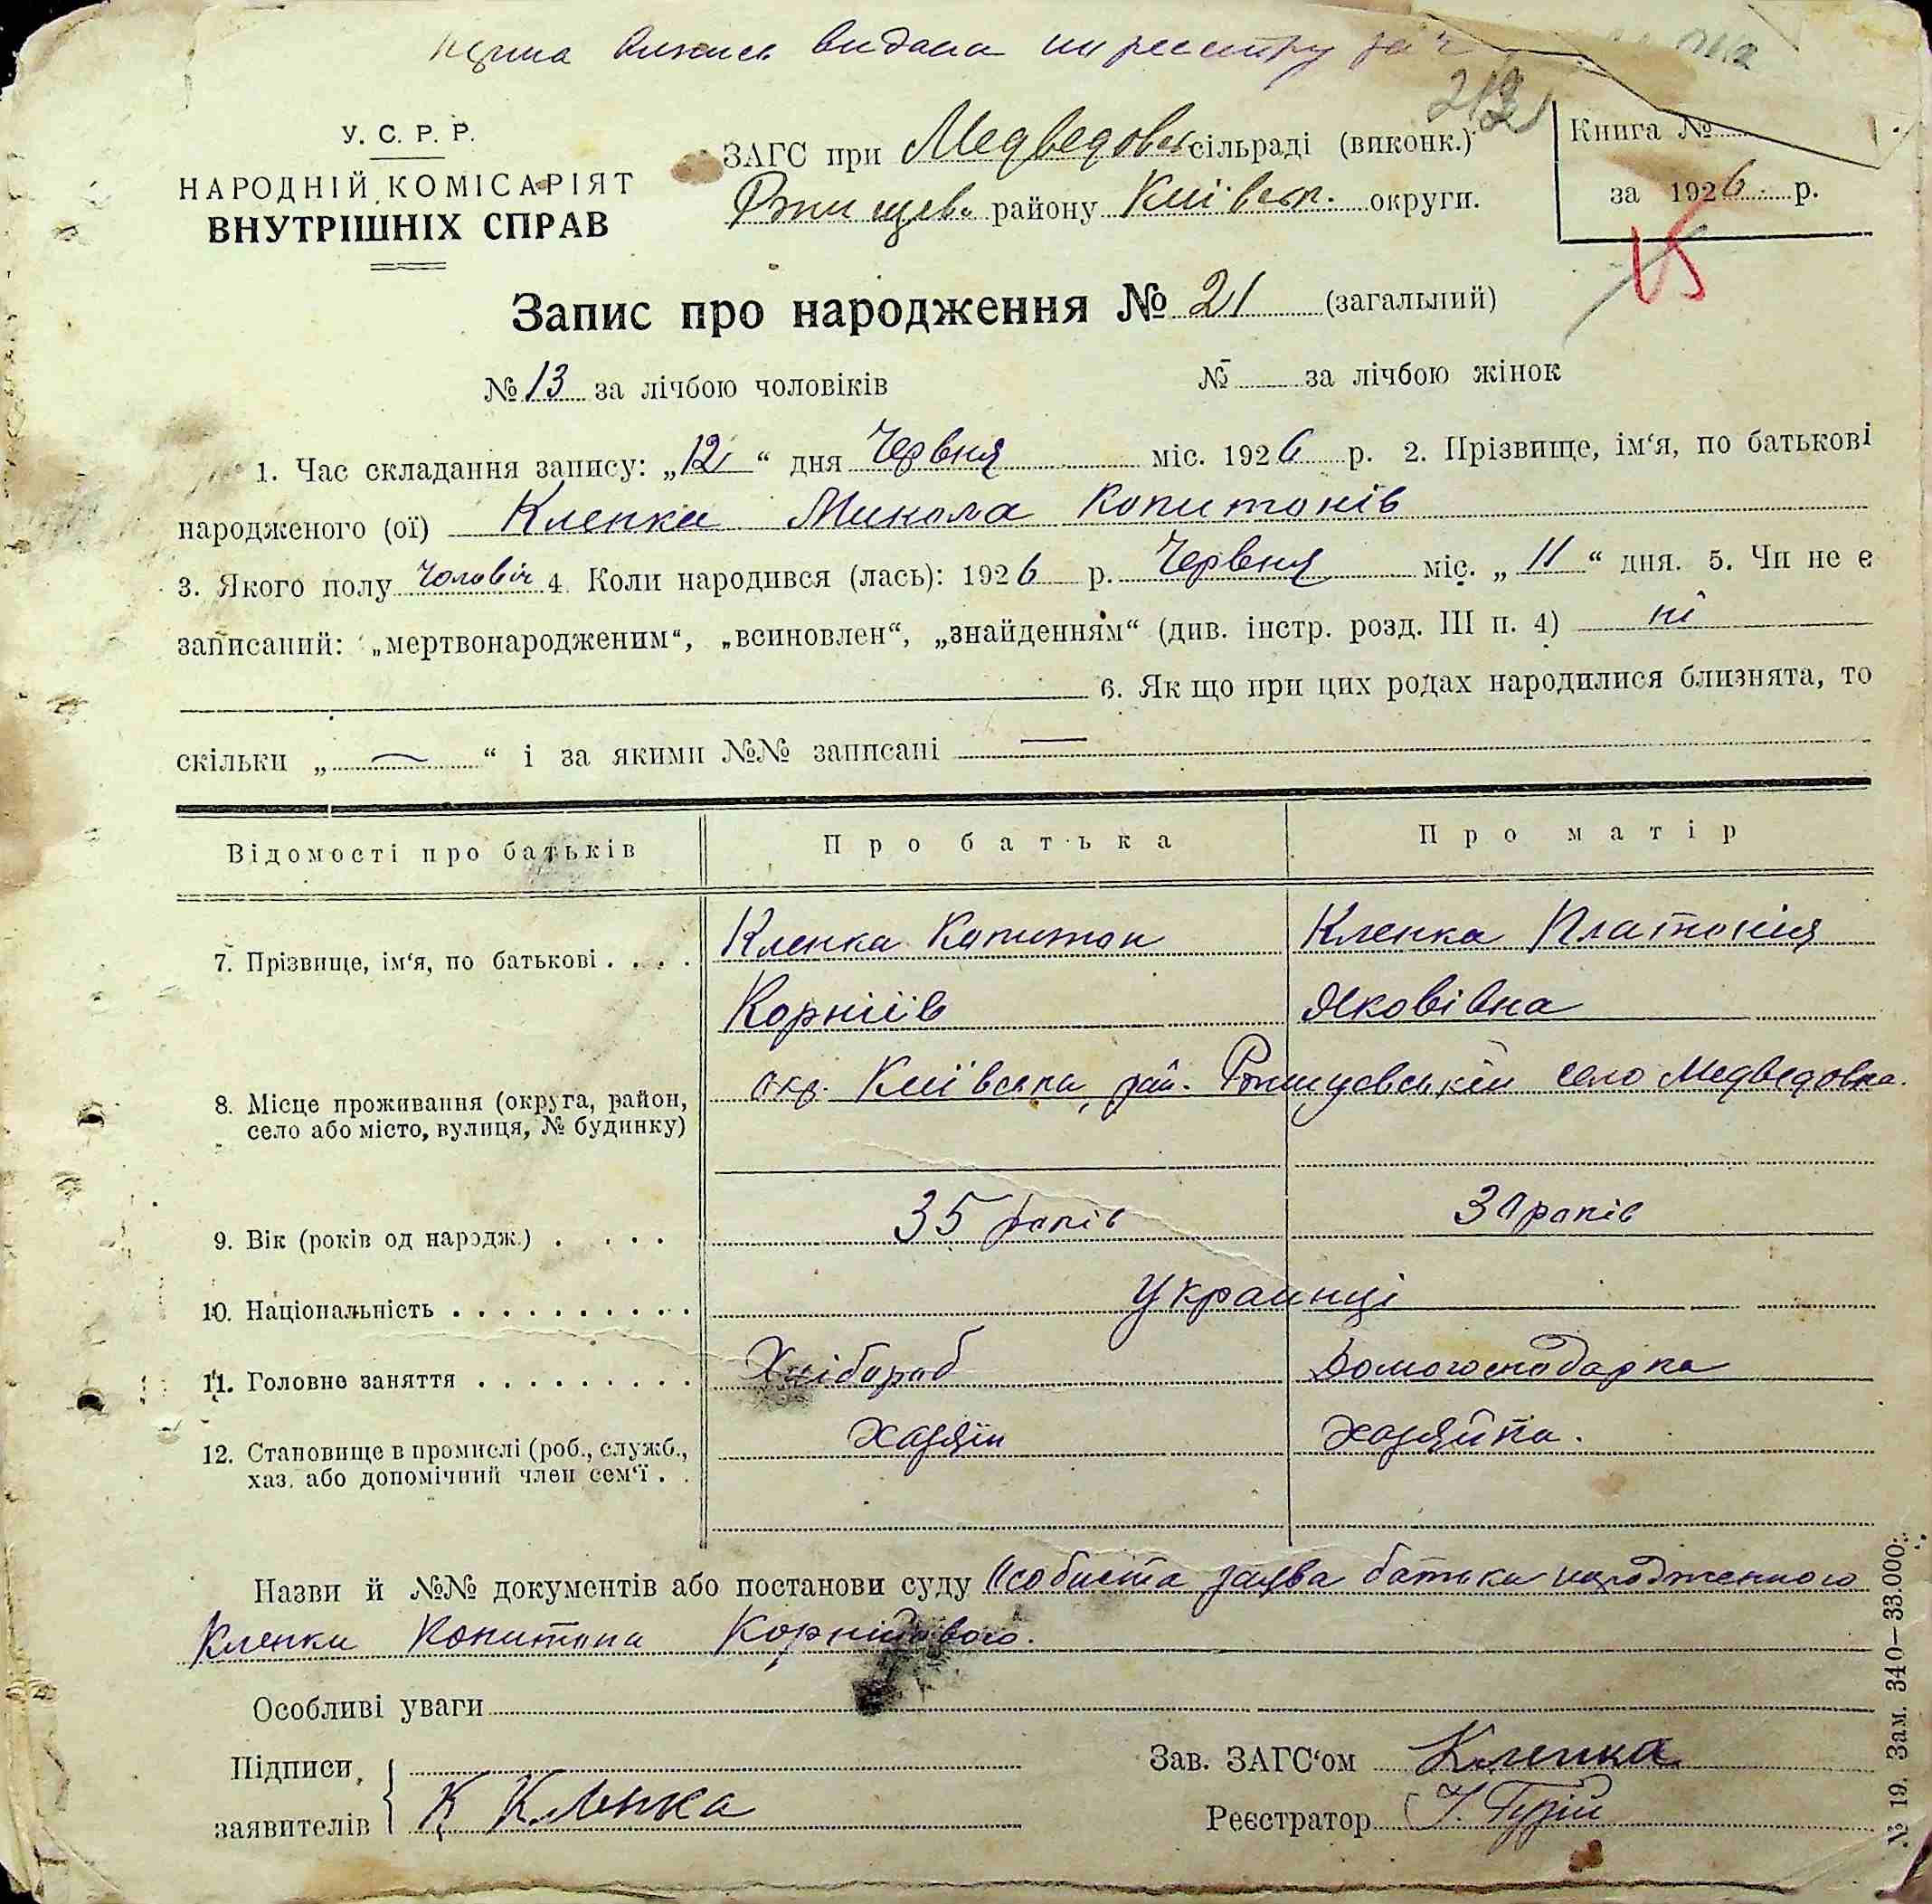 видана по реєстру
212
У. С. Р. Р.
НАРОДНІЙ КОМІСАРІЯТ
ВНУТРІШНІХ СПРАВ
ЗАГС при Медведовс сільраді (виконк.)
Ржищевс району Київськ. округи.
Книга №
за 1926 р.
15
Запис про народження № 21 (загальний)
№ 13 за лічбою чоловіків № за лічбою жінок
1. Час складання запису: „12“ дня Червня міс. 1926 р. 2. Прізвище, ім‘я, по батькові
народженого (ої) Кленка Микола Копитонів
3. Якого полу чоловіч 4. Коли народився (лась): 1926 р. Червня міс. „11“ дня. 5. Чи не є
записаний: „мертвонародженим“, „всиновлен“, „знайденням“ (див. інстр. розд. III п. 4) ні
6. Як що при цих родах народилися близнята, то
скільки „—“ і за якими №№ записані —
Відомості про батьків Про батька Про матір
7. Прізвище, ім‘я, по батькові . . . . Кленка Капитон Кленка Платонія
Корніїв Яковівна
8. Місце проживання (округа, район, окр. Київська, рай. Ржищевський село Медведовка.
село або місто, вулиця, № будинку)
9. Вік (років од народж.) . . . . 35 років 30 років
10. Національність . . . . . . . . . . Украинці
11. Головне заняття . . . . . . . . . Хлібороб Домогосподарка
12. Становище в промислі (роб., служб., хазяїн хазяйка.
хаз. або допомічний член сем‘ї . .
Назви й №№ документів або постанови суду Особиста заява батька народженного
Кленки Копитона Корнійового.
Особливі уваги
Підписи Зав. ЗАГС‘ом Кленка
заявителів К Кленка Реєстратор
№ 19. Зам. 340—33.000.